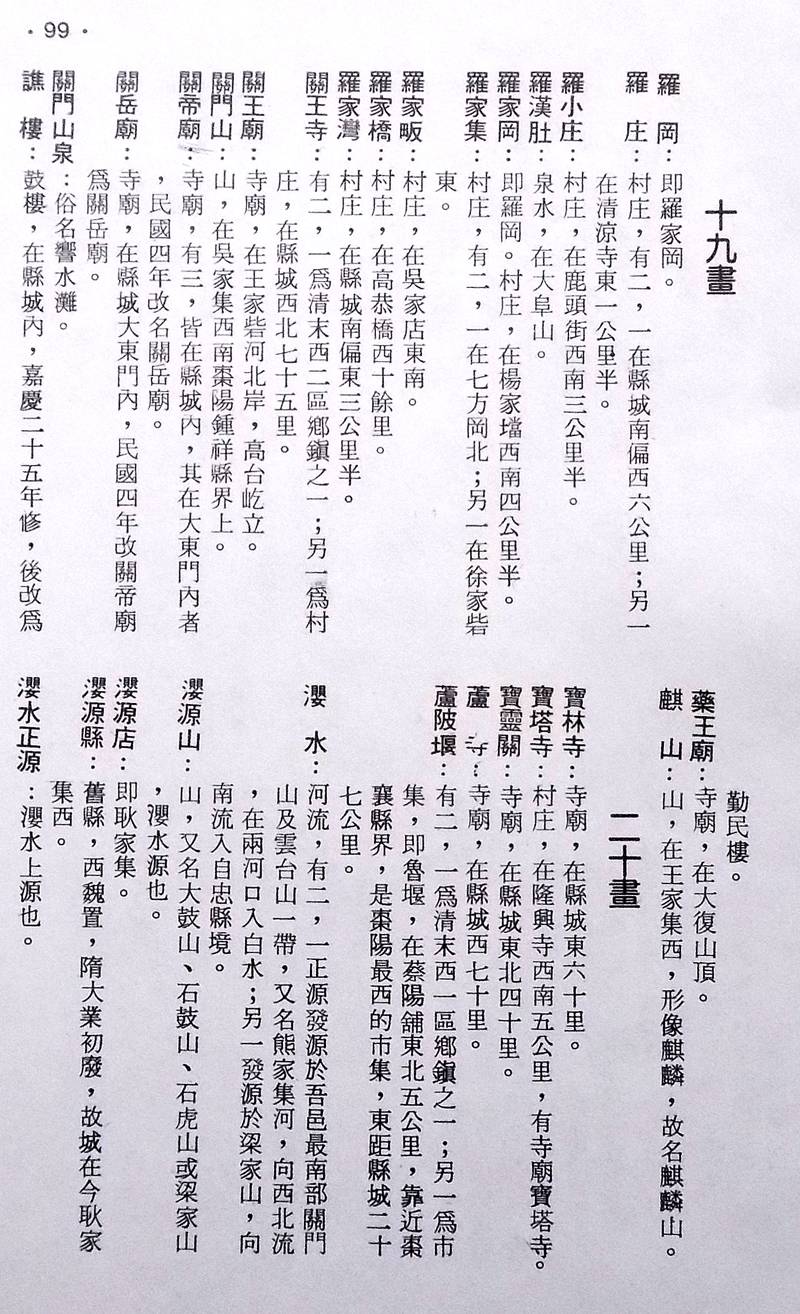 ·99·
十九畫
羅　岡：即羅家岡。
羅　庄：村庄，有二，一在縣城南偏西六公里；另一
在清涼寺東一公里半。
羅小庄：村庄，在鹿頭街西南三公里半。
羅漢肚：泉水，在大阜山。
羅家岡：即羅岡。村庄，在楊家壋西南四公里半。
羅家集：村庄，有二，一在七方岡北；另一在徐家砦
東。
羅家畈：村庄，在吳家店東南。
羅家橋：村庄，在高恭橋西十餘里。
羅家灣：村庄，在縣城南偏東三公里半。
關王寺：有二，一爲清末西二區鄉鎭之一；另一爲村
庄，在縣城西北七十五里。
關王廟：寺廟，在王家砦河北岸，高台屹立。
關門山：山，在吳家集西南棗陽鍾祥縣界上。
關帝廟：寺廟，有三，皆在縣城內，其在大東門內者
，民國四年改名關岳廟。
關岳廟：寺廟，在縣城大東門內，民國四年改關帝廟
爲關岳廟。
關門山泉：俗名響水灘。
譙　樓：鼓樓，在縣城內，嘉慶二十五年修，後改爲
勤民樓。
藥王廟：寺廟，在大復山頂。
麒　山：山，在王家集西，形像麒麟，故名麒麟山。
二十畫
寶林寺：寺廟，在縣城東六十里。
寶塔寺：村庄，在隆興寺西南五公里，有寺廟寶塔寺。
寶靈關：寺廟，在縣城東北四十里。
蘆　寺：寺廟，在縣城西七十里。
蘆陂堰：有二，一爲清末西一區鄉鎭之一；另一爲市
集，即魯堰，在蔡陽舖東北五公里，靠近棗
襄縣界，是棗陽最西的市集，東距縣城二十
七公里。
瀴　水：河流，有二，一正源發源於吾邑最南部關門
山及雲台山一帶，又名熊家集河，向西北流
，在兩河口入白水；另一發源於梁家山，向
南流入自忠縣境。
瀴源山：山，又名大鼓山、石鼓山、石虎山或梁家山
，瀴水源也。
瀴源店：即耿家集。
瀴源縣：舊縣，西魏置，隋大業初廢，故城在今耿家
集西。
瀴水正源：瀴水上源也。